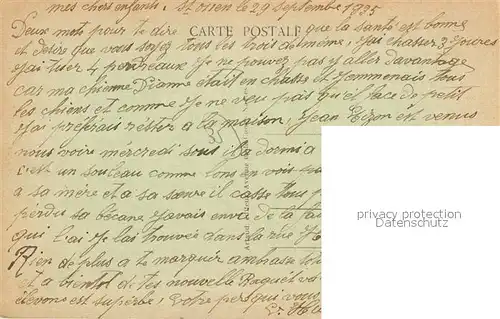 mes chers enfants. St ossen le 29 Septembre 1935
Deux mots pour te dire que la santé est bonne
CARTE POSTALE
et desire que vous soyez tous les trois de même, J'ai chasser 3 Joures
J'ai tuer 4 perdreaux Je ne pouvez pas y aller davantage
car ma chienne Dianne etait en chasse et J'emmenais tous
les chiens et comme Je ne veu pas qu'el face de petit
J'ai préférais réster a la maison, Jean est venus
nous voire mércredi sous il a dormis a
c'est un souleau comme lons en vois
a sa mère et a sa sœure il casse tous
perdus sa bécane J'avais envie de la
qui l'ai Je lai trouvée dans la rue
Rien de plus a te marquér ambrasse
et a bientot de tes nouvelle Raquel
élevone est supérbe, votre pere qui vous
privacy protection
watermark